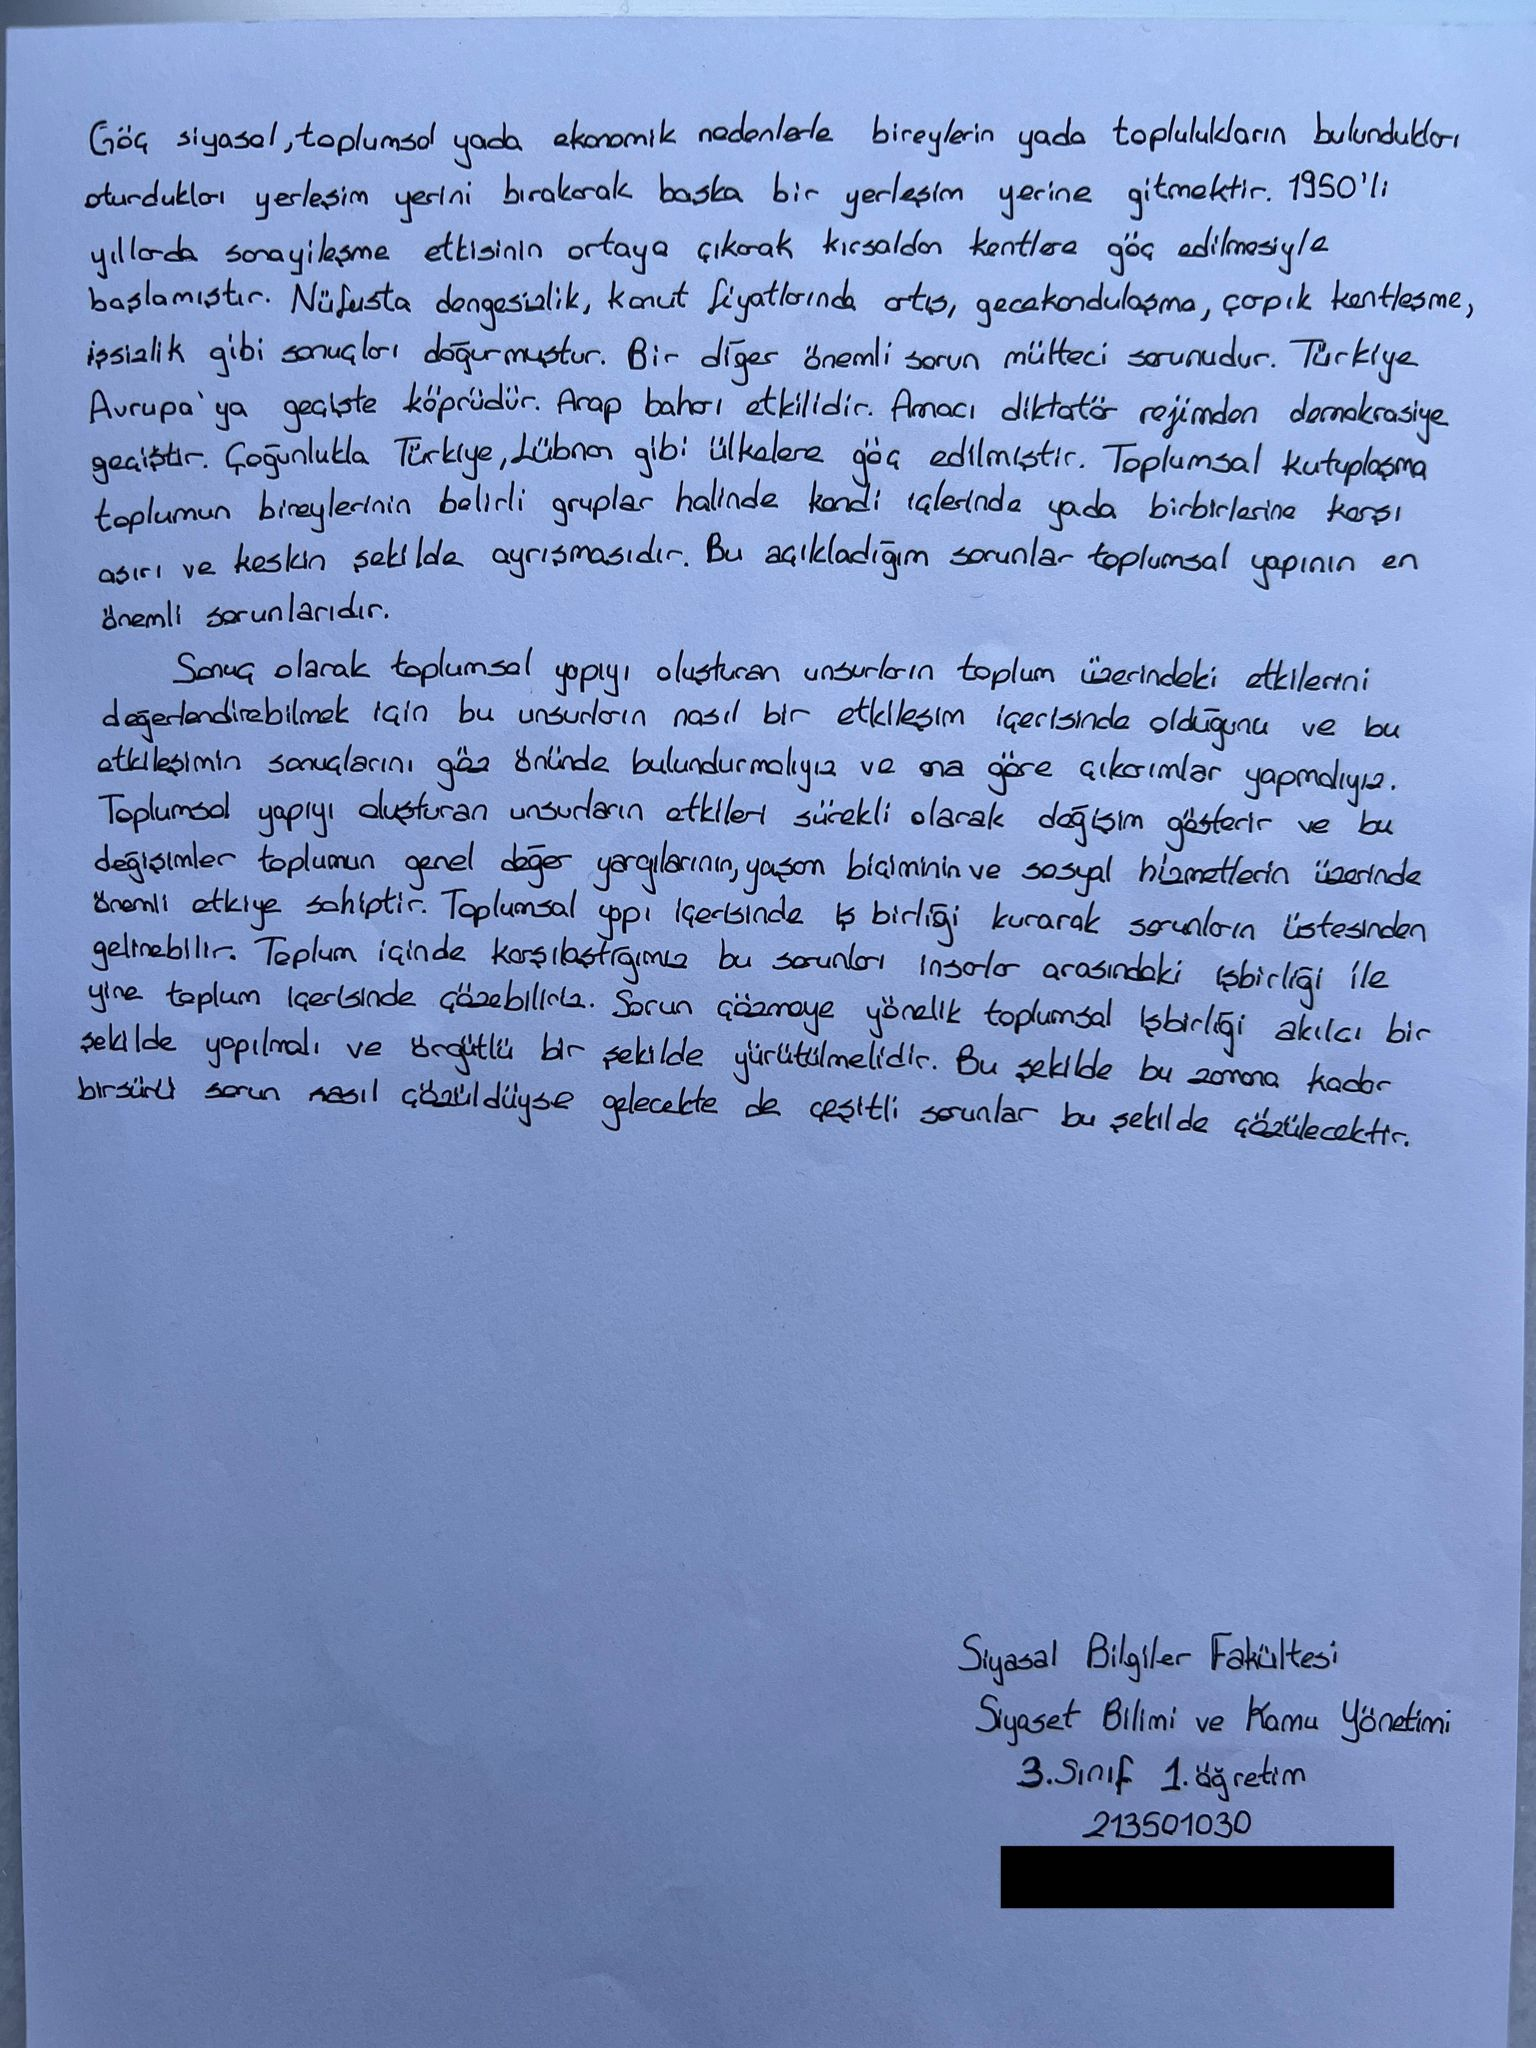 Göç siyasal, toplumsal yada ekonomik nedenlerle bireylerin yada toplulukların bulundukları
oturdukları yerleşim yerini bırakarak başka bir yerleşim yerine gitmektir. 1950'li
yıllarda sanayileşme etkisinin ortaya çıkarak kırsaldan kentlere göç edilmesiyle
başlamıştır. Nüfusta dengesizlik, konut fiyatlarında artış, gecekondulaşma, çarpık kentleşme,
işsizlik gibi sonuçları doğurmuştur. Bir diğer önemli sorun mülteci sorunudur. Türkiye
Avrupa'ya geçişte köprüdür. Arap baharı etkilidir. Amacı diktatör rejimden demokrasiye
geçiştir. Çoğunlukla Türkiye, Lübnan gibi ülkelere göç edilmiştir. Toplumsal kutuplaşma
toplumun bireylerinin belirli gruplar halinde kendi içlerinde yada birbirlerine karşı
aşırı ve keskin şekilde ayrışmasıdır. Bu açıkladığım sorunlar toplumsal yapının en
önemli sorunlarıdır.
Sonuç olarak toplumsal yapıyı oluşturan unsurların toplum üzerindeki etkilerini
değerlendirebilmek için bu unsurların nasıl bir etkileşim içerisinde olduğunu ve bu
etkileşimin sonuçlarını göz önünde bulundurmalıyız ve ona göre çıkarımlar yapmalıyız.
Toplumsal yapıyı oluşturan unsurların etkileri sürekli olarak değişim gösterir ve bu
değişimler toplumun genel değer yargılarının, yaşam biçiminin ve sosyal hizmetlerin üzerinde
önemli etkiye sahiptir. Toplumsal yapı içerisinde iş birliği kurarak sorunların üstesinden
gelinebilir. Toplum içinde karşılaştığımız bu sorunları insanlar arasındaki işbirliği ile
yine toplum içerisinde çözebiliriz. Sorun çözmeye yönelik toplumsal işbirliği akılcı bir
şekilde yapılmalı ve örgütlü bir şekilde yürütülmelidir. Bu şekilde bu zamana kadar
birsürü sorun nasıl çözüldüyse gelecekte de çeşitli sorunlar bu şekilde çözülecektir.
Siyasal Bilgiler Fakültesi
Siyaset Bilimi ve Kamu Yönetimi
3. Sınıf 1. öğretim
213501030